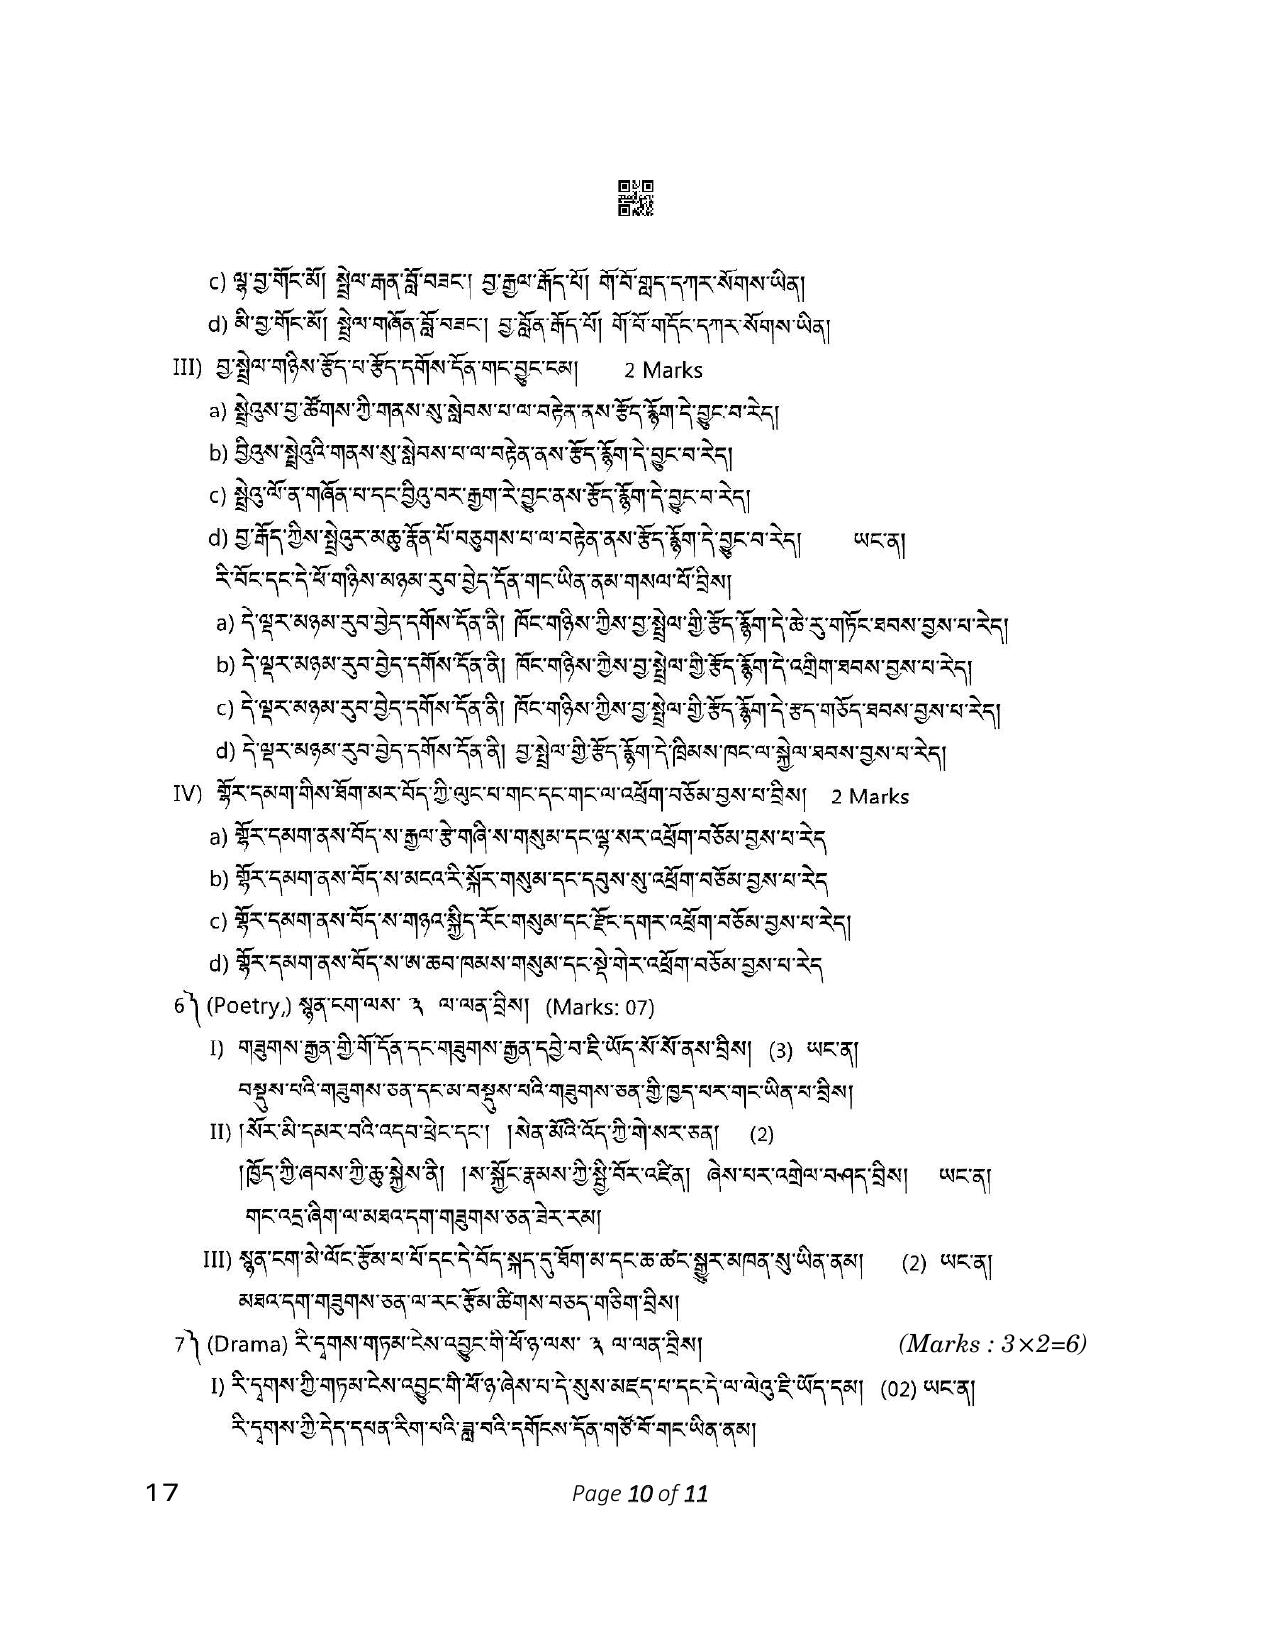 c) ལྷ་བྱ་གོང་མོ། སྤྲེལ་རྒན་བློ་བཟང་། བྱ་རྒྱལ་རྒོད་པོ། གོ་བོ་གླད་དཀར་སོགས་ཡིན།
d) མི་བྱ་གོང་མོ། སྤྲེལ་གཞོན་བློ་བཟང་། བྱ་བློན་རྒོད་པོ། གོ་བོ་གདོང་དཀར་སོགས་ཡིན།
III) བྱ་སྤྲེལ་གཉིས་རྩོད་པ་རྩོད་དགོས་དོན་གང་བྱུང་ངམ། 2 Marks
a) སྤྲེའུས་བྱ་ཚོགས་ཀྱི་གནས་སུ་སླེབས་པ་ལ་བརྟེན་ནས་རྩོད་རྙོག་དེ་བྱུང་བ་རེད།
b) བྱིའུས་སྤྲེའུའི་གནས་སུ་སླེབས་པ་ལ་བརྟེན་ནས་རྩོད་རྙོག་དེ་བྱུང་བ་རེད།
c) སྤྲེའུ་ལོ་ན་གཞོན་པ་དང་བྱིའུ་བར་རྒྱག་རེ་བྱུང་ནས་རྩོད་རྙོག་དེ་བྱུང་བ་རེད།
d) བྱ་རྒོད་ཀྱིས་སྤྲེའུར་མཆུ་རྣོན་པོ་བཙུགས་པ་ལ་བརྟེན་ནས་རྩོད་རྙོག་དེ་བྱུང་བ་རེད། ཡང་ན།
རི་བོང་དང་དེ་ཕོ་གཉིས་མཉམ་རུབ་བྱེད་དོན་གང་ཡིན་ནམ་གསལ་པོ་བྲིས།
a) དེ་ལྟར་མཉམ་རུབ་བྱེད་དགོས་དོན་ནི། ཁོང་གཉིས་ཀྱིས་བྱ་སྤྲེལ་གྱི་རྩོད་རྙོག་དེ་ཆེ་རུ་གཏོང་ཐབས་བྱས་པ་རེད།
b) དེ་ལྟར་མཉམ་རུབ་བྱེད་དགོས་དོན་ནི། ཁོང་གཉིས་ཀྱིས་བྱ་སྤྲེལ་གྱི་རྩོད་རྙོག་དེ་འགྲིག་ཐབས་བྱས་པ་རེད།
c) དེ་ལྟར་མཉམ་རུབ་བྱེད་དགོས་དོན་ནི། ཁོང་གཉིས་ཀྱིས་བྱ་སྤྲེལ་གྱི་རྩོད་རྙོག་དེ་རྩད་གཅོད་ཐབས་བྱས་པ་རེད།
d) དེ་ལྟར་མཉམ་རུབ་བྱེད་དགོས་དོན་ནི། བྱ་སྤྲེལ་གྱི་རྩོད་རྙོག་དེ་ཁྲིམས་ཁང་ལ་སྐྱེལ་ཐབས་བྱས་པ་རེད།
IV) སྟོར་དམག་གིས་ཐོག་མར་བོད་ཀྱི་ལུང་པ་གང་དང་གང་ལ་འཕྲོག་བཅོམ་བྱས་པ་བྲིས། 2 Marks
a) སྟོར་དམག་ནས་བོད་ས་རྒྱལ་རྩེ་གཞི་ས་གསུམ་དང་ལྷ་སར་འཕྲོག་བཅོམ་བྱས་པ་རེད
b) སྟོར་དམག་ནས་བོད་ས་མངའ་རི་སྐོར་གསུམ་དང་དབུས་སུ་འཕྲོག་བཅོམ་བྱས་པ་རེད
c) སྟོར་དམག་ནས་བོད་ས་གཉའ་སྐྱིད་རོང་གསུམ་དང་རྫོང་དགར་འཕྲོག་བཅོམ་བྱས་པ་རེད།
d) སྟོར་དམག་ནས་བོད་ས་ཨ་ཆབ་ཁམས་གསུམ་དང་སྡེ་གེར་འཕྲོག་བཅོམ་བྱས་པ་རེད
6༽ (Poetry,) སྙན་ངག་ལས་ ༣ ལ་ལན་བྲིས། (Marks: 07)
I) གཟུགས་རྒྱན་གྱི་གོ་དོན་དང་གཟུགས་རྒྱན་དབྱེ་བ་ཇི་ཡོད་སོ་སོ་ནས་བྲིས། (3) ཡང་ན།
བསྡུས་པའི་གཟུགས་ཅན་དང་མ་བསྡུས་པའི་གཟུགས་ཅན་གྱི་ཁྱད་པར་གང་ཡིན་པ་བྲིས།
II) །སོར་མི་དམར་བའི་འདབ་ཕྲེང་དང་། །སེན་མོའི་འོད་ཀྱི་གེ་སར་ཅན། (2)
།ཁྱོད་ཀྱི་ཞབས་ཀྱི་ཆུ་སྐྱེས་ནི། །ས་སྐྱོང་རྣམས་ཀྱི་སྤྱི་བོར་འཛིན། ཞེས་པར་འགྲེལ་བཤད་བྲིས། ཡང་ན།
གང་འདྲ་ཞིག་ལ་མཐའ་དག་གཟུགས་ཅན་ཟེར་རམ།
III) སྙན་ངག་མེ་ལོང་རྩོམ་པ་པོ་དང་དེ་བོད་སྐད་དུ་ཐོག་མ་དང་ཆ་ཚང་སྒྱུར་མཁན་སུ་ཡིན་ནམ། (2) ཡང་ན།
མཐའ་དག་གཟུགས་ཅན་ལ་རང་རྩོམ་ཚིགས་བཅད་གཅིག་བྲིས།
7༽ (Drama) རི་དྭགས་གཏམ་ངེས་འབྱུང་གི་ཕོ་ཉ་ལས་ ༣ ལ་ལན་བྲིས། (Marks : 3×2=6)
I) རི་དྭགས་ཀྱི་གཏམ་ངེས་འབྱུང་གི་ཕོ་ཉ་ཞེས་པ་དེ་སུས་མཛད་པ་དང་དེ་ལ་ལེའུ་ཇི་ཡོད་དམ། (02) ཡང་ན།
རི་དྭགས་ཀྱི་དེད་དཔན་རིག་པའི་ཟླ་བའི་དགོངས་དོན་གཙོ་བོ་གང་ཡིན་ནམ།
17 Page 10 of 11